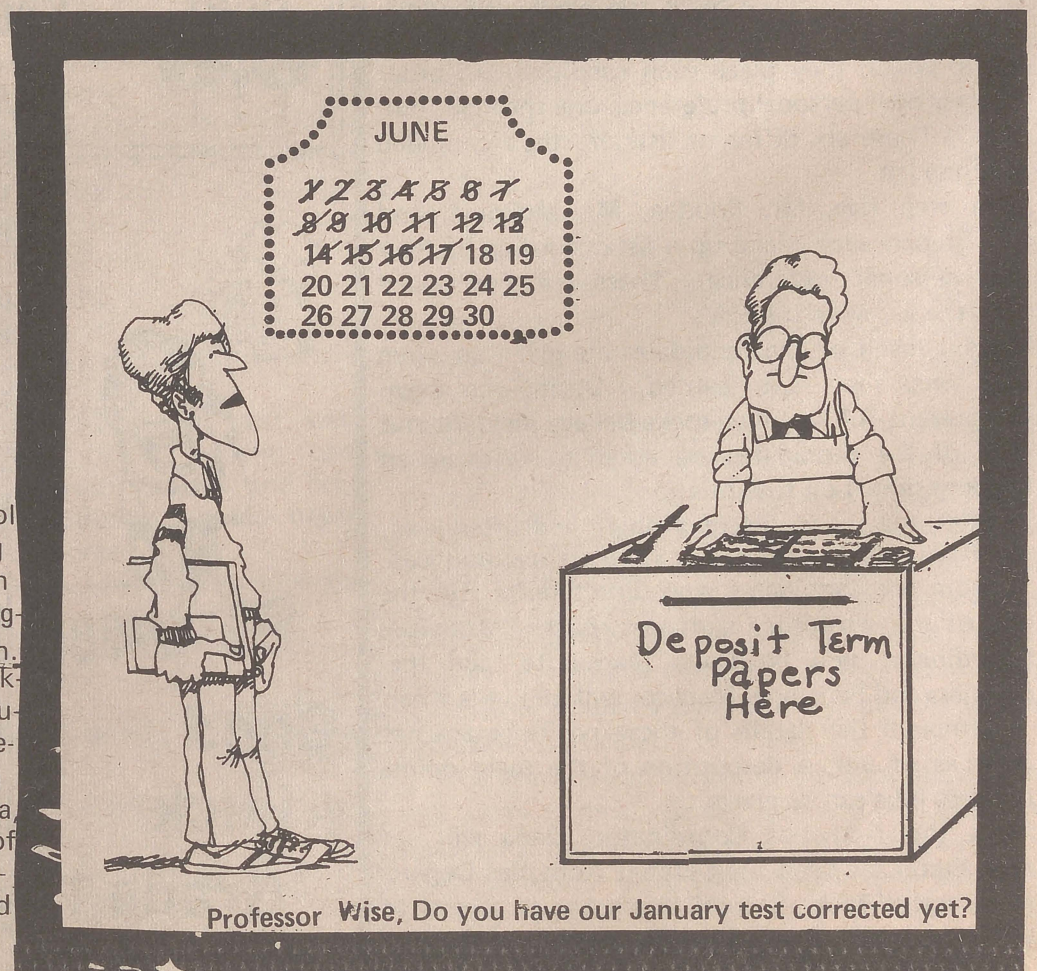 JUNE
1 2 3 4 5 6 7
8 9 10 11 12 13
14 15 16 17 18 19
20 21 22 23 24 25
26 27 28 29 30
Deposit Term
Papers
Here
Professor Wise, Do you have our January test corrected yet?
ol
g-
k-
u-
e-
a,
of
d